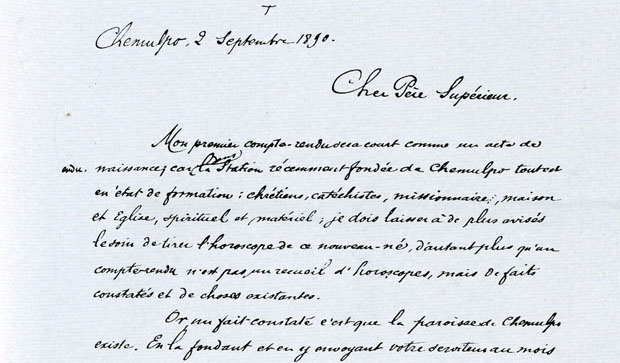 †
Chemulpo, 2 Septembre 1890.
Cher Père Supérieur.
Mon premier compte-rendu sera court comme un acte de
naissance; car dans la Station récemment fondée de Chemulpo tout est
en état de formation: chrétiens, catéchistes, missionnaire; maison
et Eglise, spirituel et matériel; je dois laisser à de plus avisés
le soin de tirer l'horoscope de ce nouveau-né, d'autant plus qu'un
compte-rendu n'est pas un recueil d'horoscopes, mais de faits
constatés et de choses existantes.
Or, un fait constaté c'est que la paroisse de Chemulpo
existe. En la fondant et en y envoyant votre serviteur au mois